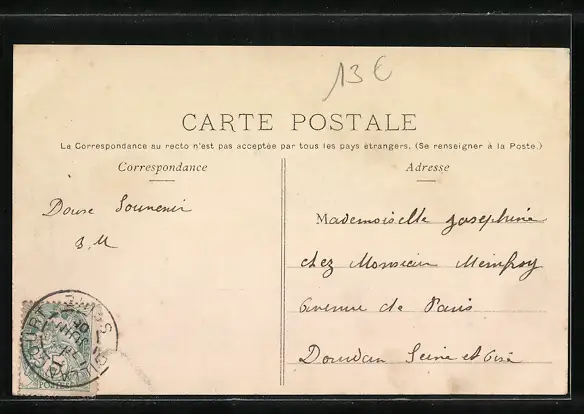 13 €
CARTE POSTALE
La Correspondance au recto n'est pas acceptée par tous les pays étrangers. (Se renseigner à la Poste.)
Correspondance
Adresse
Doux Souvenir
J. M
Mademoiselle Josephine
chez Monsieur Meinfroy
avenue de Paris
Dourdan Seine et Oise
POSTES